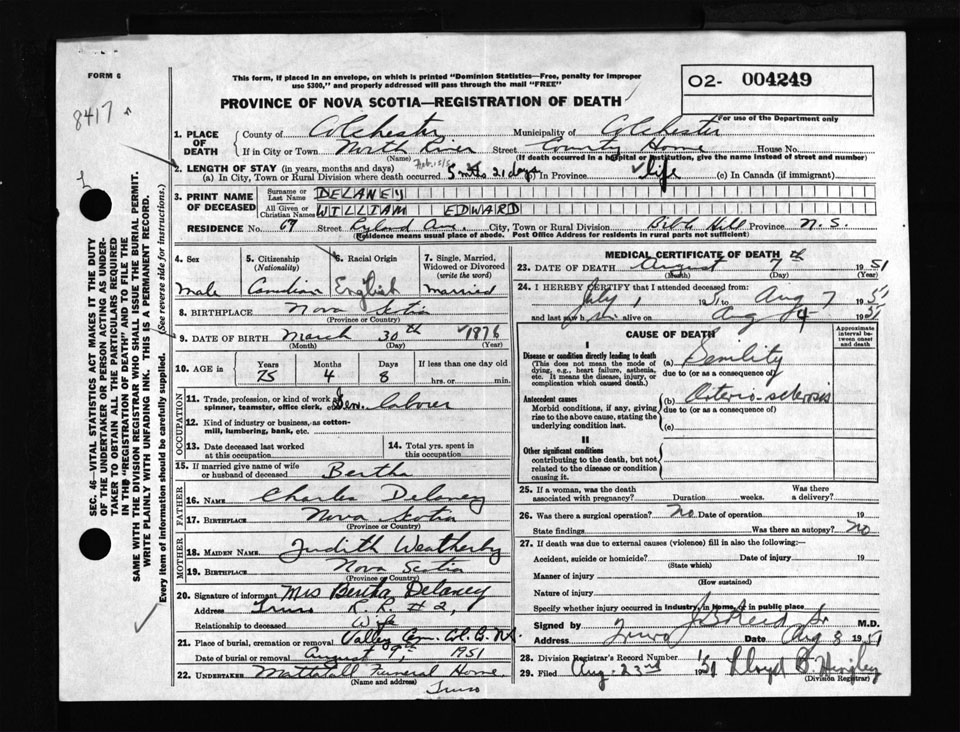 FORM 6
8417
This form, if placed in an envelope, on which is printed "Dominion Statistics—Free, penalty for improper
use $300," and properly addressed will pass through the mail "FREE"
O2- 004249
For use of the Department only
PROVINCE OF NOVA SCOTIA—REGISTRATION OF DEATH
1. PLACE OF DEATH County of Colchester Municipality of Colchester
If in City or Town North River Street County Home House No.
(Name) (If death occurred in a hospital or institution, give the name instead of street and number)
2. LENGTH OF STAY (in years, months and days)
(a) In City, Town or Rural Division where death occurred 5 mths 21 days In Province life (c) In Canada (if immigrant)
3. PRINT NAME OF DECEASED Surname or Last Name DELANEY
All Given or Christian Names WILLIAM EDWARD
RESIDENCE No. 69 Street Ryland Ave. City, Town or Rural Division Bible Hill Province N. S.
(Residence means usual place of abode. Post Office Address for residents in rural parts not sufficient)
4. Sex 5. Citizenship (Nationality) 6. Racial Origin 7. Single, Married, Widowed or Divorced (write the word)
Male Canadian English Married
8. BIRTHPLACE Nova Scotia
(Province or Country)
9. DATE OF BIRTH March 30th 1876
(Month) (Day) (Year)
10. AGE in Years Months Days If less than one day old
75 4 8 hrs. or min.
OCCUPATION
11. Trade, profession, or kind of work as spinner, teamster, office clerk, Gen. laborer
12. Kind of industry or business, as cotton-mill, lumbering, bank, etc.
13. Date deceased last worked at this occupation
14. Total yrs. spent in this occupation
15. If married give name of wife or husband of deceased Bertha
FATHER
16. NAME Charles Delaney
17. BIRTHPLACE Nova Scotia
(Province or Country)
MOTHER
18. MAIDEN NAME Judith Weatherby
19. BIRTHPLACE Nova Scotia
(Province or Country)
20. Signature of informant Mrs Bertha Delaney
Address Truro R. R. # 2,
Relationship to deceased Wife
21. Place of burial, cremation or removal Valley Cem. Col. Co. N.S.
Date of burial or removal August 9th, 1951
22. UNDERTAKER Mattatall Funeral Home
(Name and address) Truro
MEDICAL CERTIFICATE OF DEATH
23. DATE OF DEATH August 7th 1951
(Month) (Day) (Year)
24. I HEREBY CERTIFY that I attended deceased from:
July 1 1951 to Aug 7 1951
and last saw him alive on Aug 4 1951
CAUSE OF DEATH
Approximate interval between onset and death
I
Disease or condition directly leading to death
(This does not mean the mode of dying, e.g., heart failure, asthenia, etc. It means the disease, injury, or complication which caused death.)
(a) Senility
due to (or as a consequence of)
Antecedent causes
Morbid conditions, if any, giving rise to the above cause, stating the underlying condition last.
(b) Arterio-sclerosis
due to (or as a consequence of)
(c)
II
Other significant conditions
contributing to the death, but not related to the disease or condition causing it.
25. If a woman, was the death associated with pregnancy? Duration weeks. Was there a delivery?
26. Was there a surgical operation? No Date of operation 19
State findings Was there an autopsy? No
27. If death was due to external causes (violence) fill in also the following:—
Accident, suicide or homicide? Date of injury 19
(State which)
Manner of injury
(How sustained)
Nature of injury
Specify whether injury occurred in Industry, in Home, or in public place
Signed by J B Reid Sr M.D.
Address Truro Date Aug 8 1951
28. Division Registrar's Record Number
29. Filed Aug. 23rd 1951 Lloyd C. Hingley
(Division Registrar)
SEC. 46—VITAL STATISTICS ACT MAKES IT THE DUTY
OF THE UNDERTAKER OR PERSON ACTING AS UNDER-
TAKER TO OBTAIN ALL THE PARTICULARS REQUIRED
IN THE "REGISTRATION OF DEATH" AND TO FILE THE
SAME WITH THE DIVISION REGISTRAR WHO SHALL ISSUE THE BURIAL PERMIT.
WRITE PLAINLY WITH UNFADING INK. THIS IS A PERMANENT RECORD.
Every item of information should be carefully supplied. (See reverse side for instructions.)